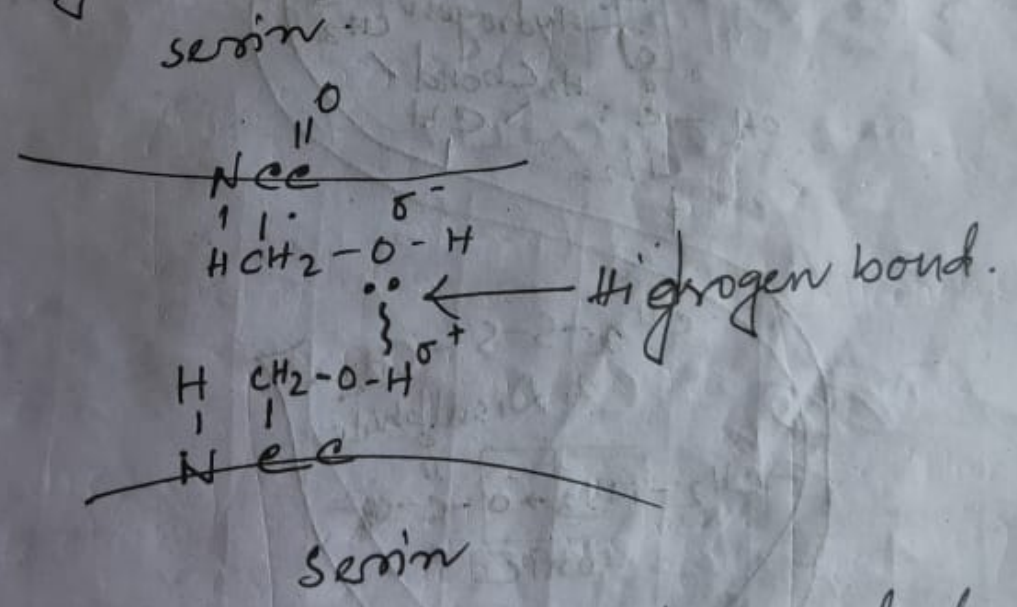 serin.
O
||
N C C
σ-
H CH2 - O - H
Hidrogen bond.
σ+
H CH2-O-H
N C C
Serin